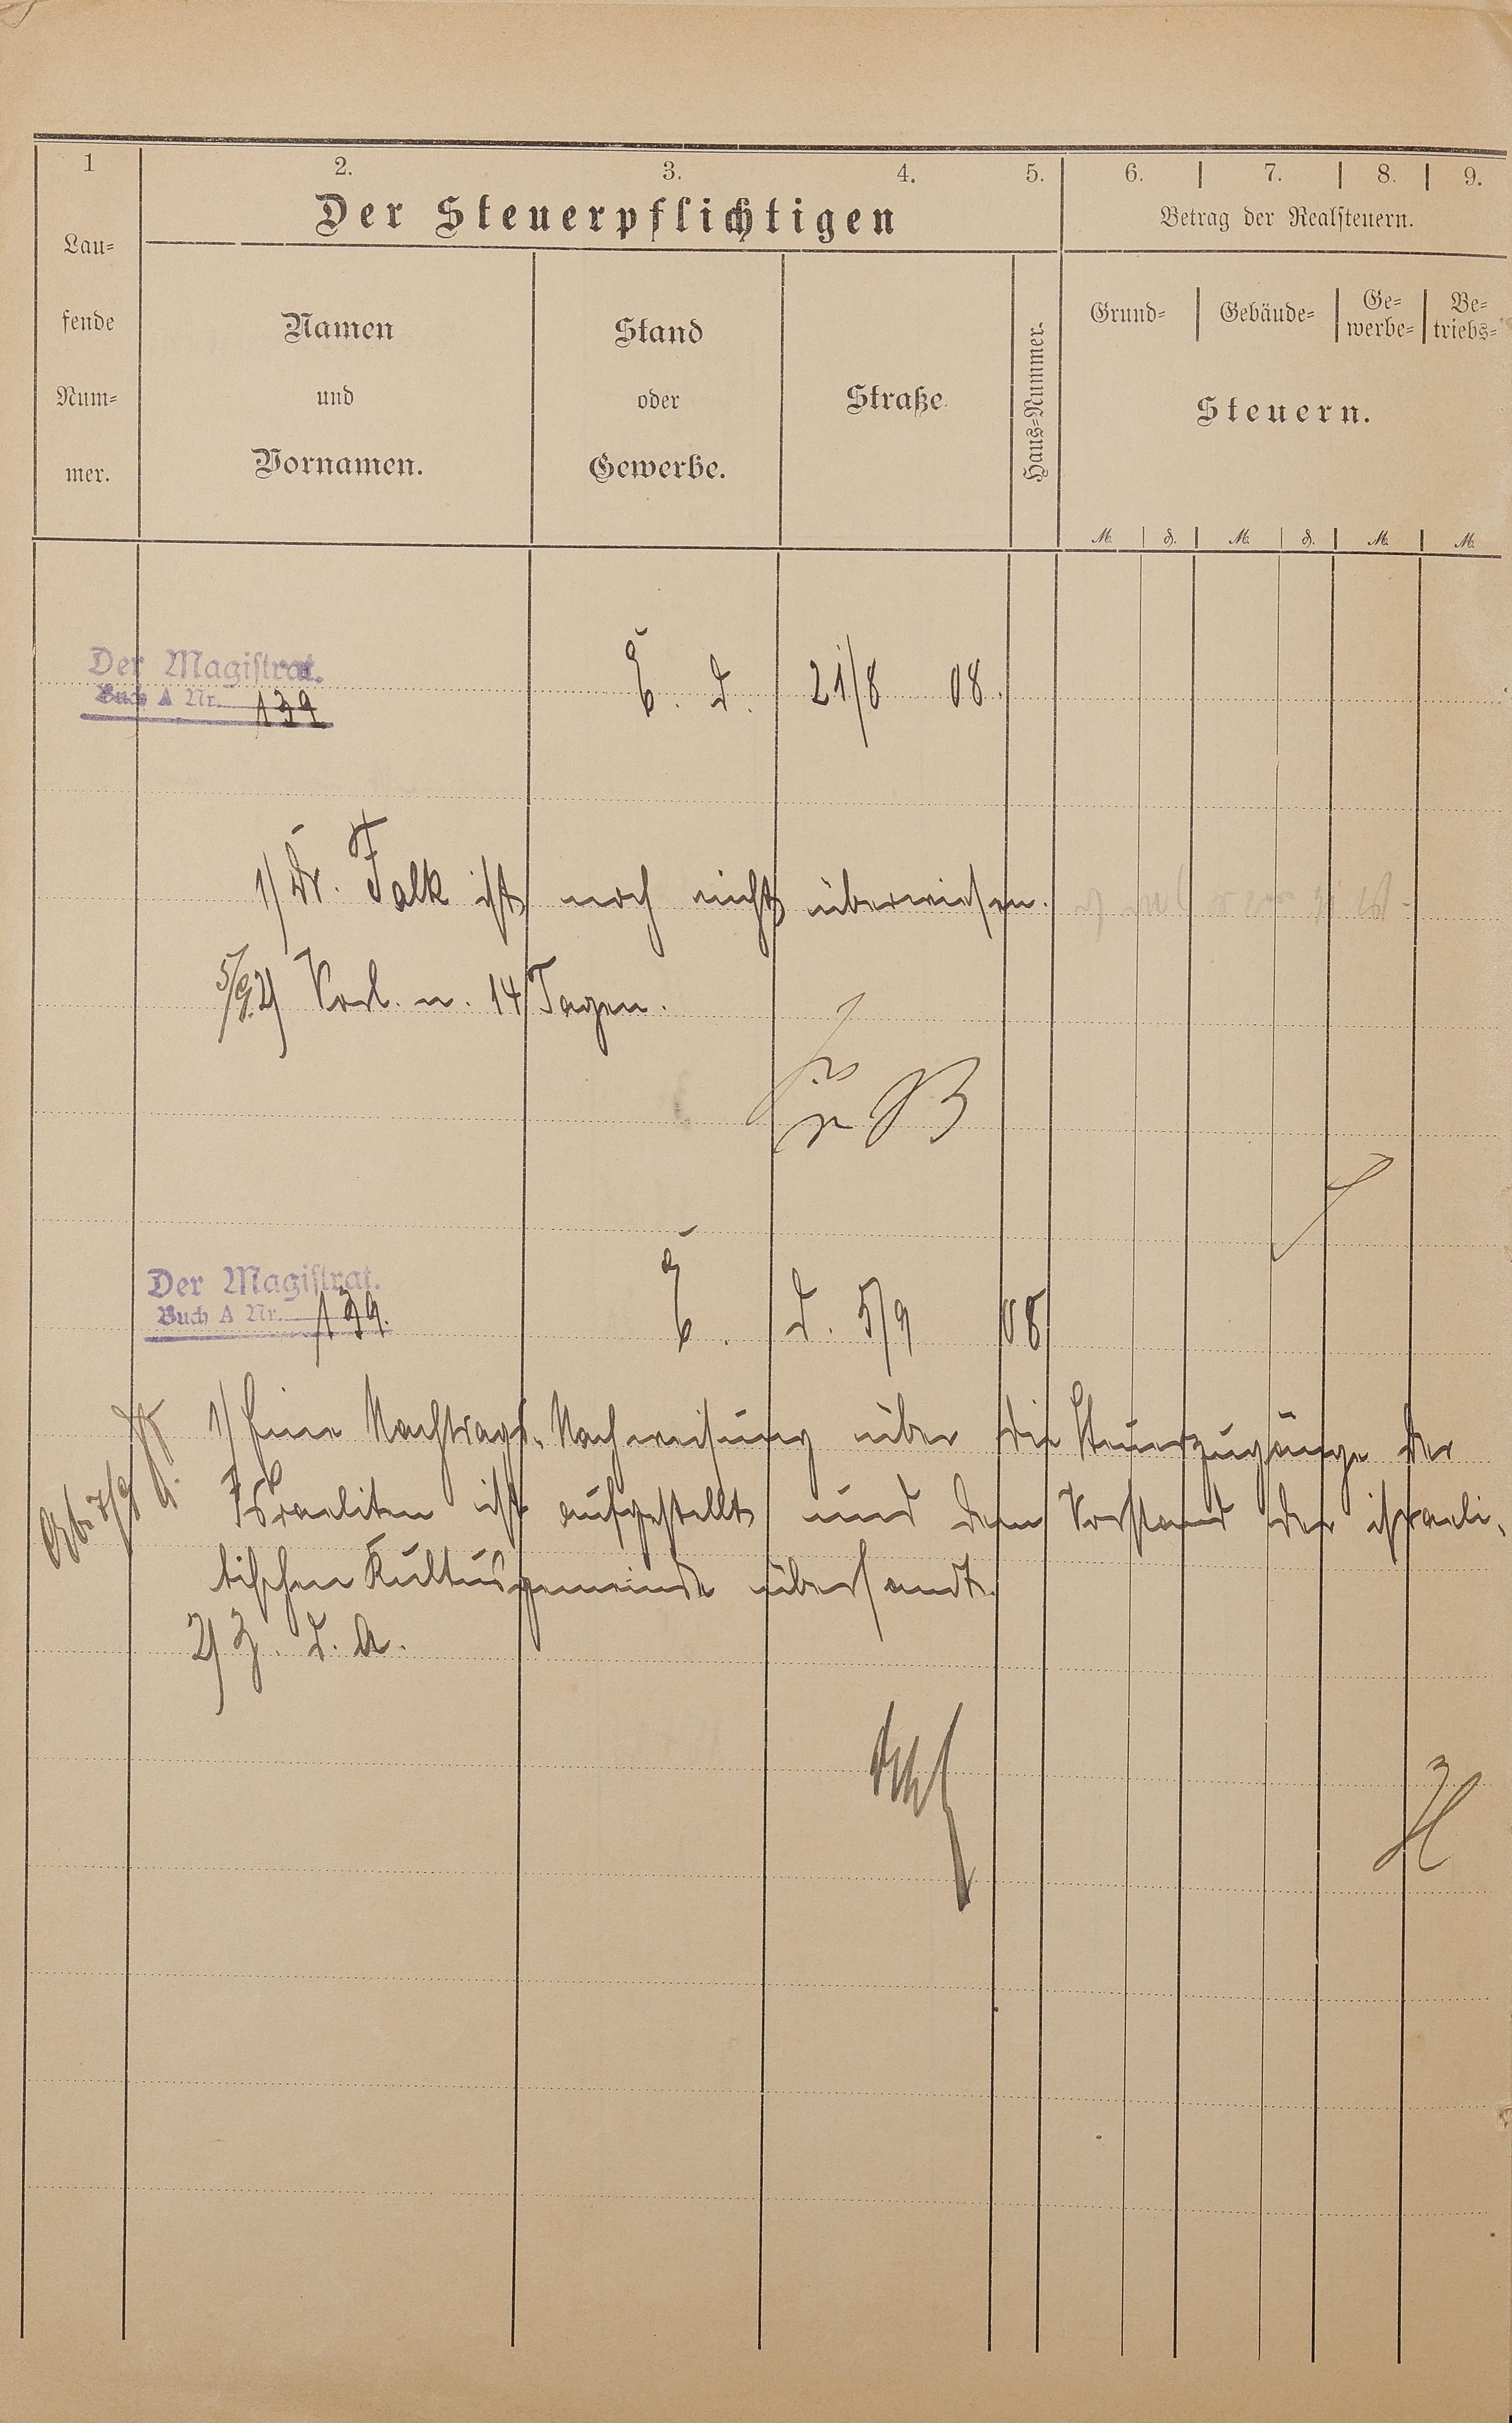 1 2. 3. 4. 5. 6. 7. 8. 9.
Der Steuerpflichtigen
Betrag der Realsteuern.
Lau-
fende
Num-
mer.
Namen
und
Vornamen.
Stand
oder
Gewerbe.
Straße
Haus-Nummer.
Grund- Gebäude- Ge-
werbe- Be-
triebs-
Steuern.
M. ₰. M. ₰. M. M.
Der Magistrat.
Buch A Nr. 139
d. 21/8 08.
1) Dr. Falk ist noch nicht überwiesen.
5/9. 2) Vorl. n. 14 Tagen.
Der Magistrat.
Buch A Nr. 139.
d. 5/9 08
1) Eine Nachtrags-Nachweisung über die Steuerzugänge der
Israeliten ist aufgestellt und dem Vorstand der israeli-
tischen Kultusgemeinde übersandt.
2) Z. d. A.